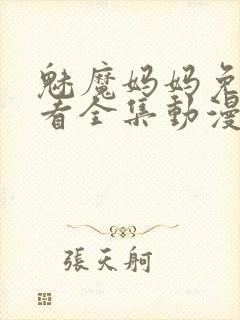 魅魔妈妈免
看全集動漫
張天舸